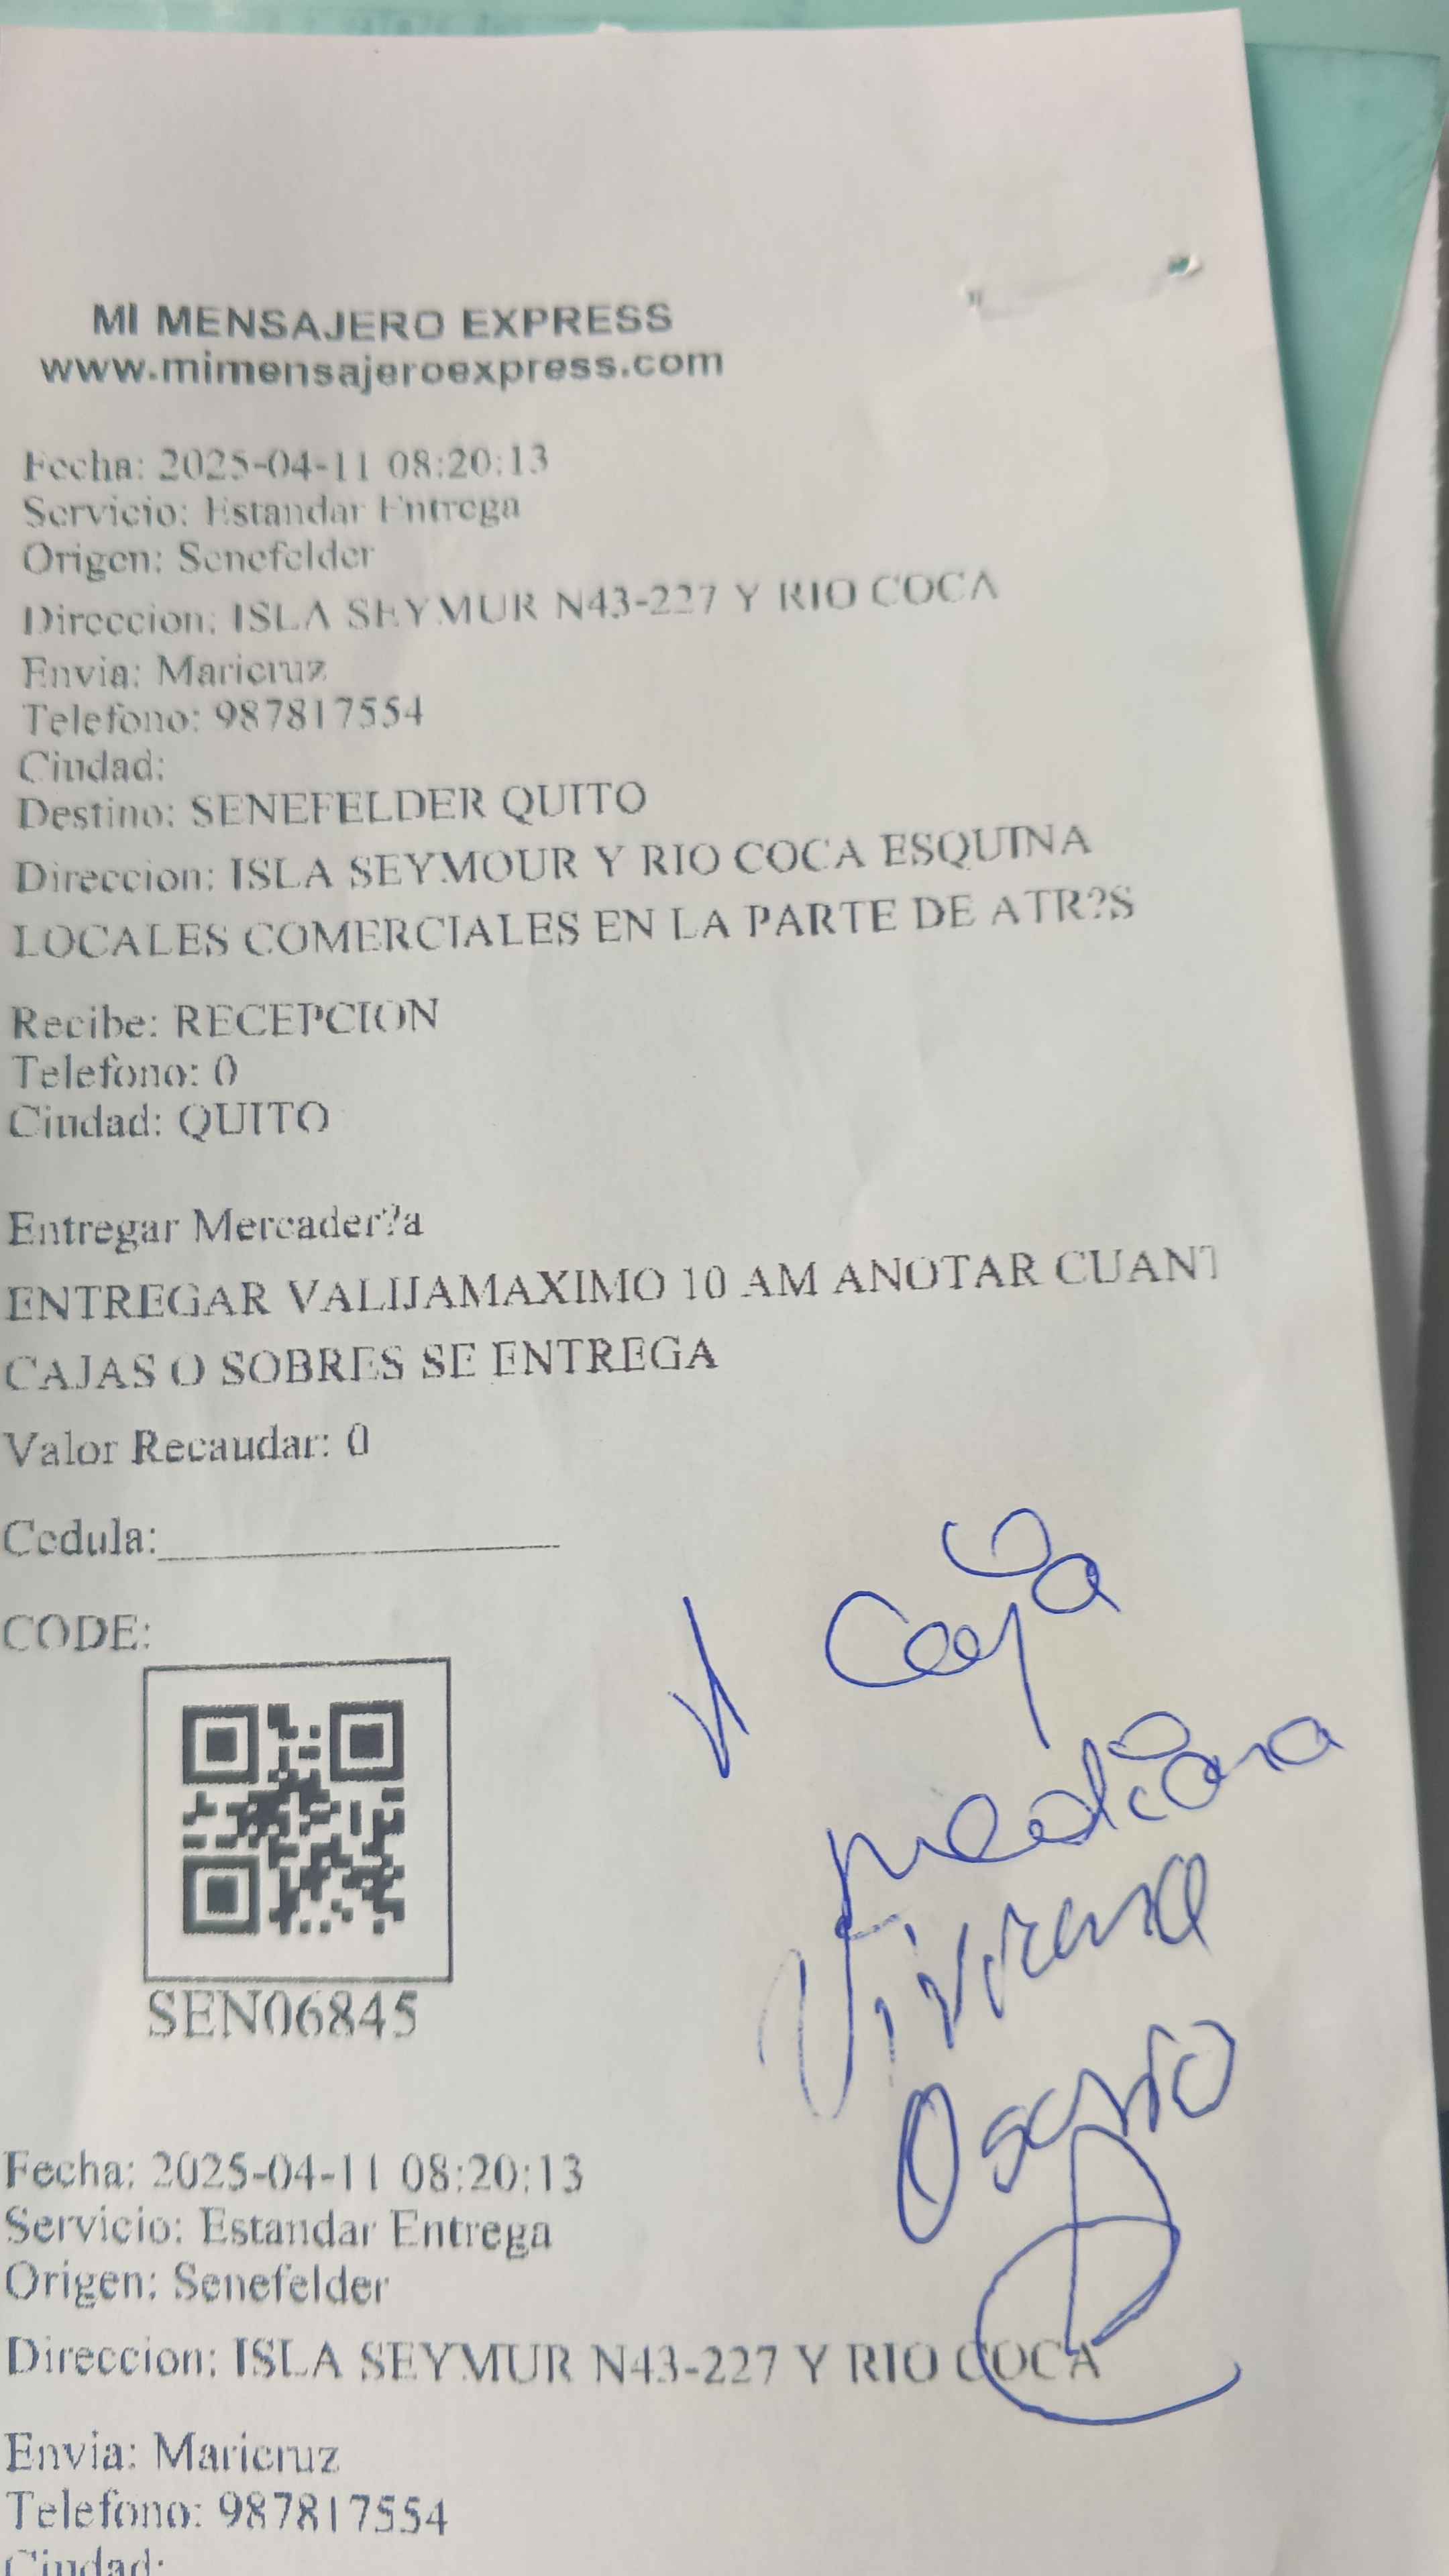 MI MENSAJERO EXPRESS
www.mimensajeroexpress.com
Fecha: 2025-04-11 08:20:13
Servicio: Estandar Entrega
Origen: Senefelder
Direccion: ISLA SEYMUR N43-227 Y RIO COCA
Envia: Maricruz
Telefono: 987817554
Ciudad:
Destino: SENEFELDER QUITO
Direccion: ISLA SEYMOUR Y RIO COCA ESQUINA
LOCALES COMERCIALES EN LA PARTE DE ATR?S
Recibe: RECEPCION
Telefono: 0
Ciudad: QUITO
Entregar Mercader?a
ENTREGAR VALIJAMAXIMO 10 AM ANOTAR CUANT
CAJAS O SOBRES SE ENTREGA
Valor Recaudar: 0
Cedula:
CODE:
1 Caja
mediana
Viviana
Osorio
SEN06845
Fecha: 2025-04-11 08:20:13
Servicio: Estandar Entrega
Origen: Senefelder
Direccion: ISLA SEYMUR N43-227 Y RIO COCA
Envia: Maricruz
Telefono: 987817554
Ciudad: